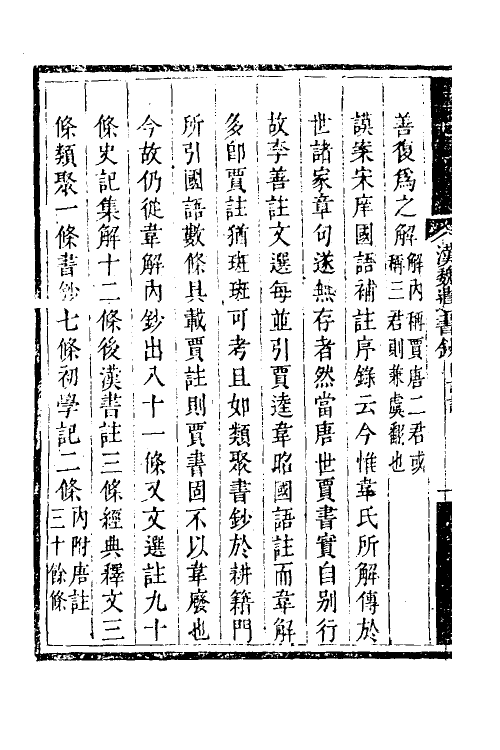 善復爲之解解內稱賈唐二君或稱三君則兼虞翻也
謨案宋庠國語補註序錄云今惟韋氏所解傳於
世諸家章句遂無存者然當唐世賈書實自別行
故李善註文選每並引賈逵韋昭國語註而韋解
多卽賈註猶班班可考且如類聚書鈔於耕籍門
所引國語數條具載賈註則賈書固不以韋廢也
今故仍從韋解內鈔出八十一條又文選註九十
條史記集解十二條後漢書註三條經典釋文三
條類聚一條書鈔七條初學記二條內附唐註三十餘條
漢魏遺書鈔